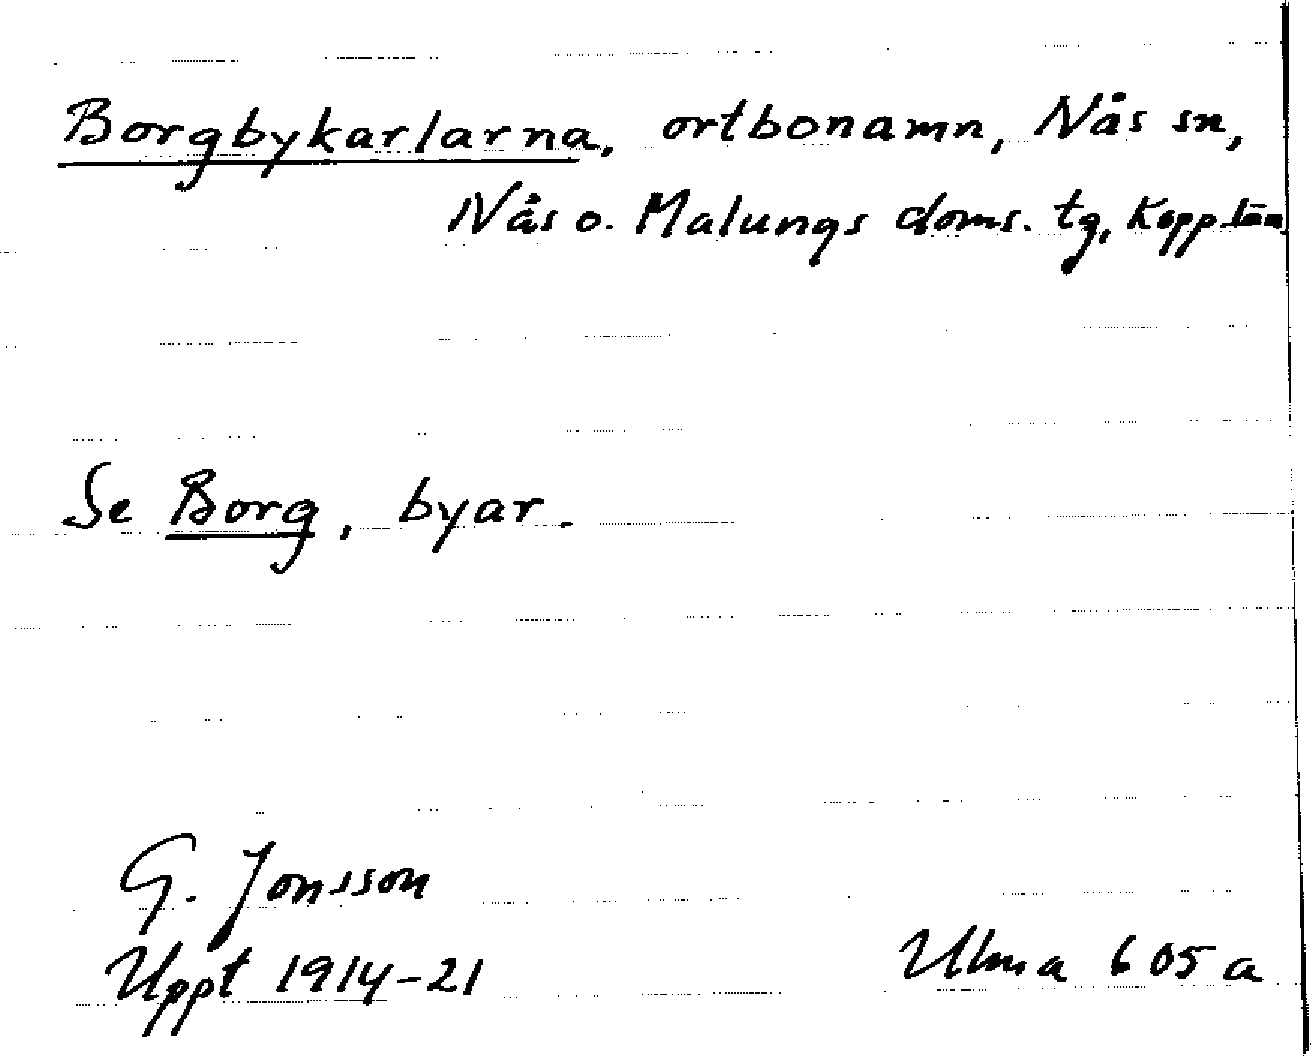 Borgbykarlarna, ortbonamn, Nås sn,
Nås o. Malungs doms. tg, Kopp. län
Se Borg, byar.
G. Jonsson
Uppt 1914-21
Ulma 605 a